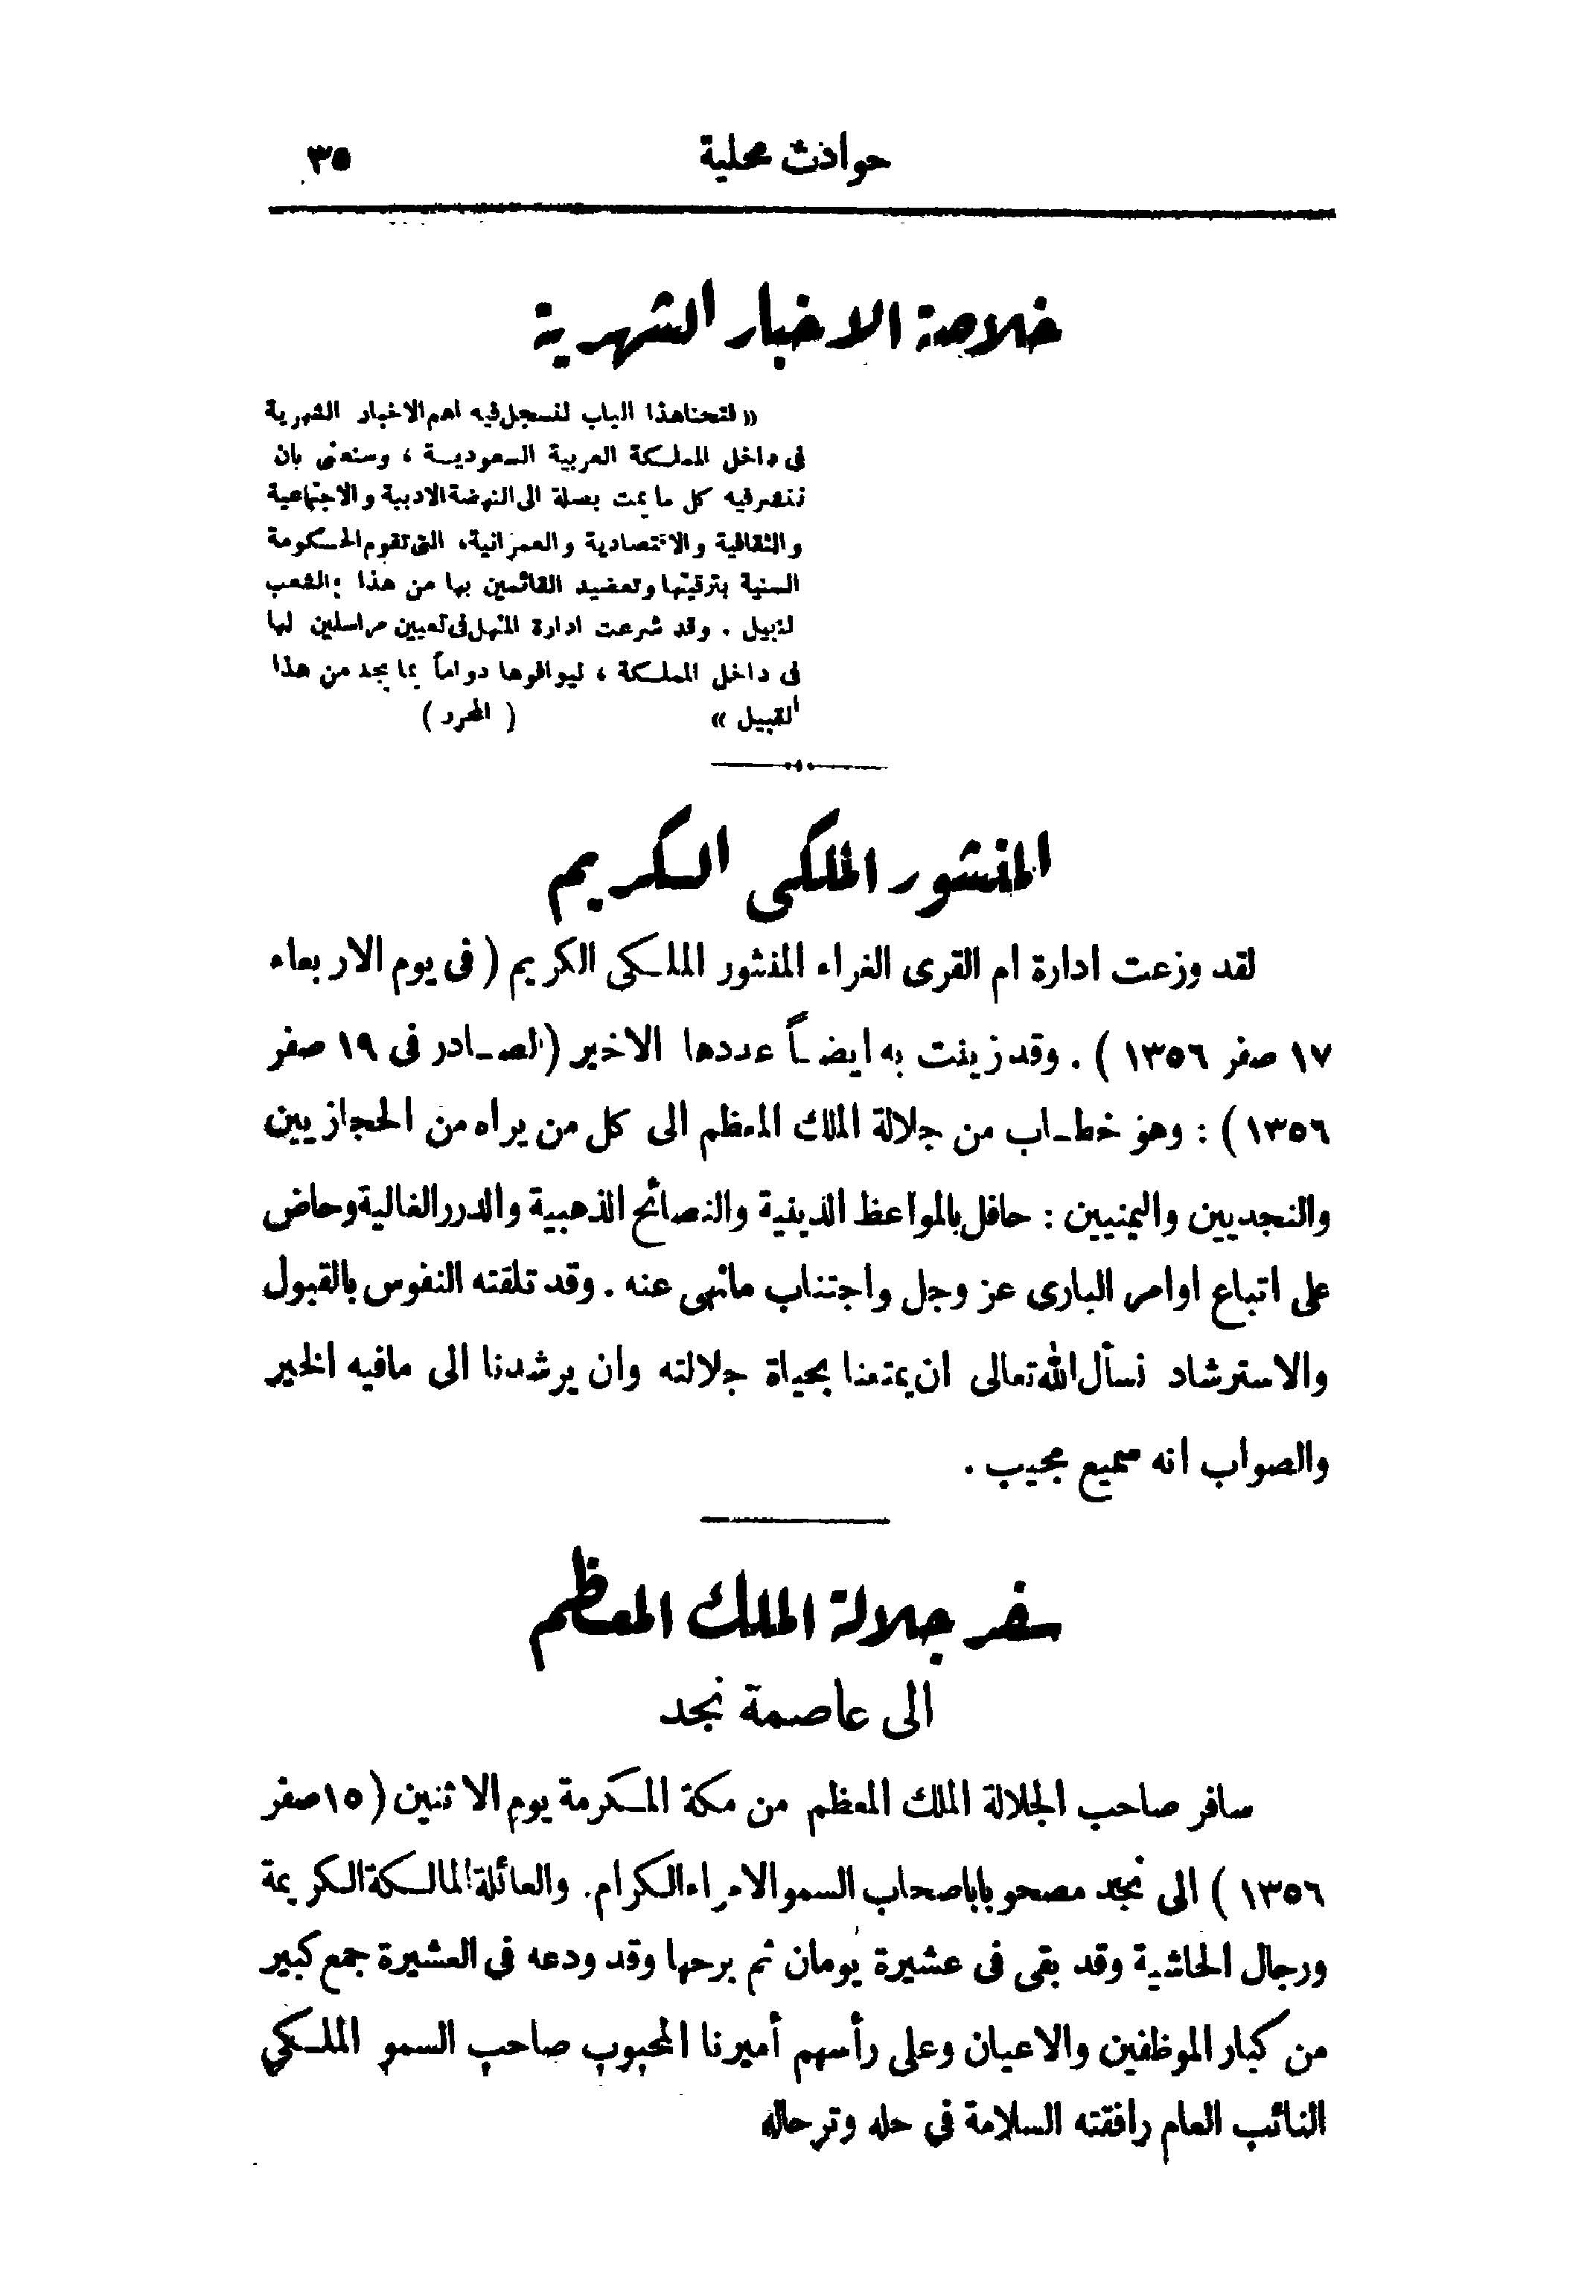 حوادث محلية ٣٥
خلاصة الاخبار الشهرية
« فتحنا هذا الباب لنسجل فيه اهم الاخبار الشهرية
فى داخل المملكة العربية السعودية ، وسنعنى بان
ننشر فيه كل ما يمت بصلة الى النهضة الادبية والاجتماعية
والثقافية والاقتصادية والعمرانية، التى تقوم الحكومة
السنية بترقيتها وتعضيد القائمين بها من هذا الشعب
لنبيل . وقد شرعت ادارة المنهل فى تعيين مراسلين لها
فى داخل المملكة ، ليوافوها دواماً بما يجد من هذا
القبيل » ( المحرر )
المنشور الملكى الكريم
لقد وزعت ادارة ام القرى الغراء المنشور الملكى الكريم ( فى يوم الاربعاء
١٧ صفر ١٣٥٦ ) . وقد زينت به ايضاً عددها الاخير ( الصادر فى ١٩ صفر
١٣٥٦ ) : وهو خطاب من جلالة الملك المعظم الى كل من يراه من الحجازيين
والنجديين واليمنيين : حافل بالمواعظ الدينية والنصائح الذهبية والدرر الغالية وحاض
على اتباع اوامر البارى عز وجل واجتناب مانهى عنه . وقد تلقته النفوس بالقبول
والاسترشاد نسأل الله تعالى ان يمتعنا بحياة جلالته وان يرشدنا الى مافيه الخير
والصواب انه سميع مجيب .
سفر جلالة الملك المعظم
الى عاصمة نجد
سافر صاحب الجلالة الملك المعظم من مكة المكرمة يوم الاثنين ( ١٥ صفر
١٣٥٦ ) الى نجد مصحوبا باصحاب السمو الامراء الكرام. والعائلة المالكة الكريمة
ورجال الحاشية وقد بقى فى عشيرة يومان ثم برحها وقد ودعه في العشيرة جمع كبير
من كبار الموظفين والاعيان وعلى رأسهم أميرنا المحبوب صاحب السمو الملكي
النائب العام رافقته السلامة في حله وترحاله